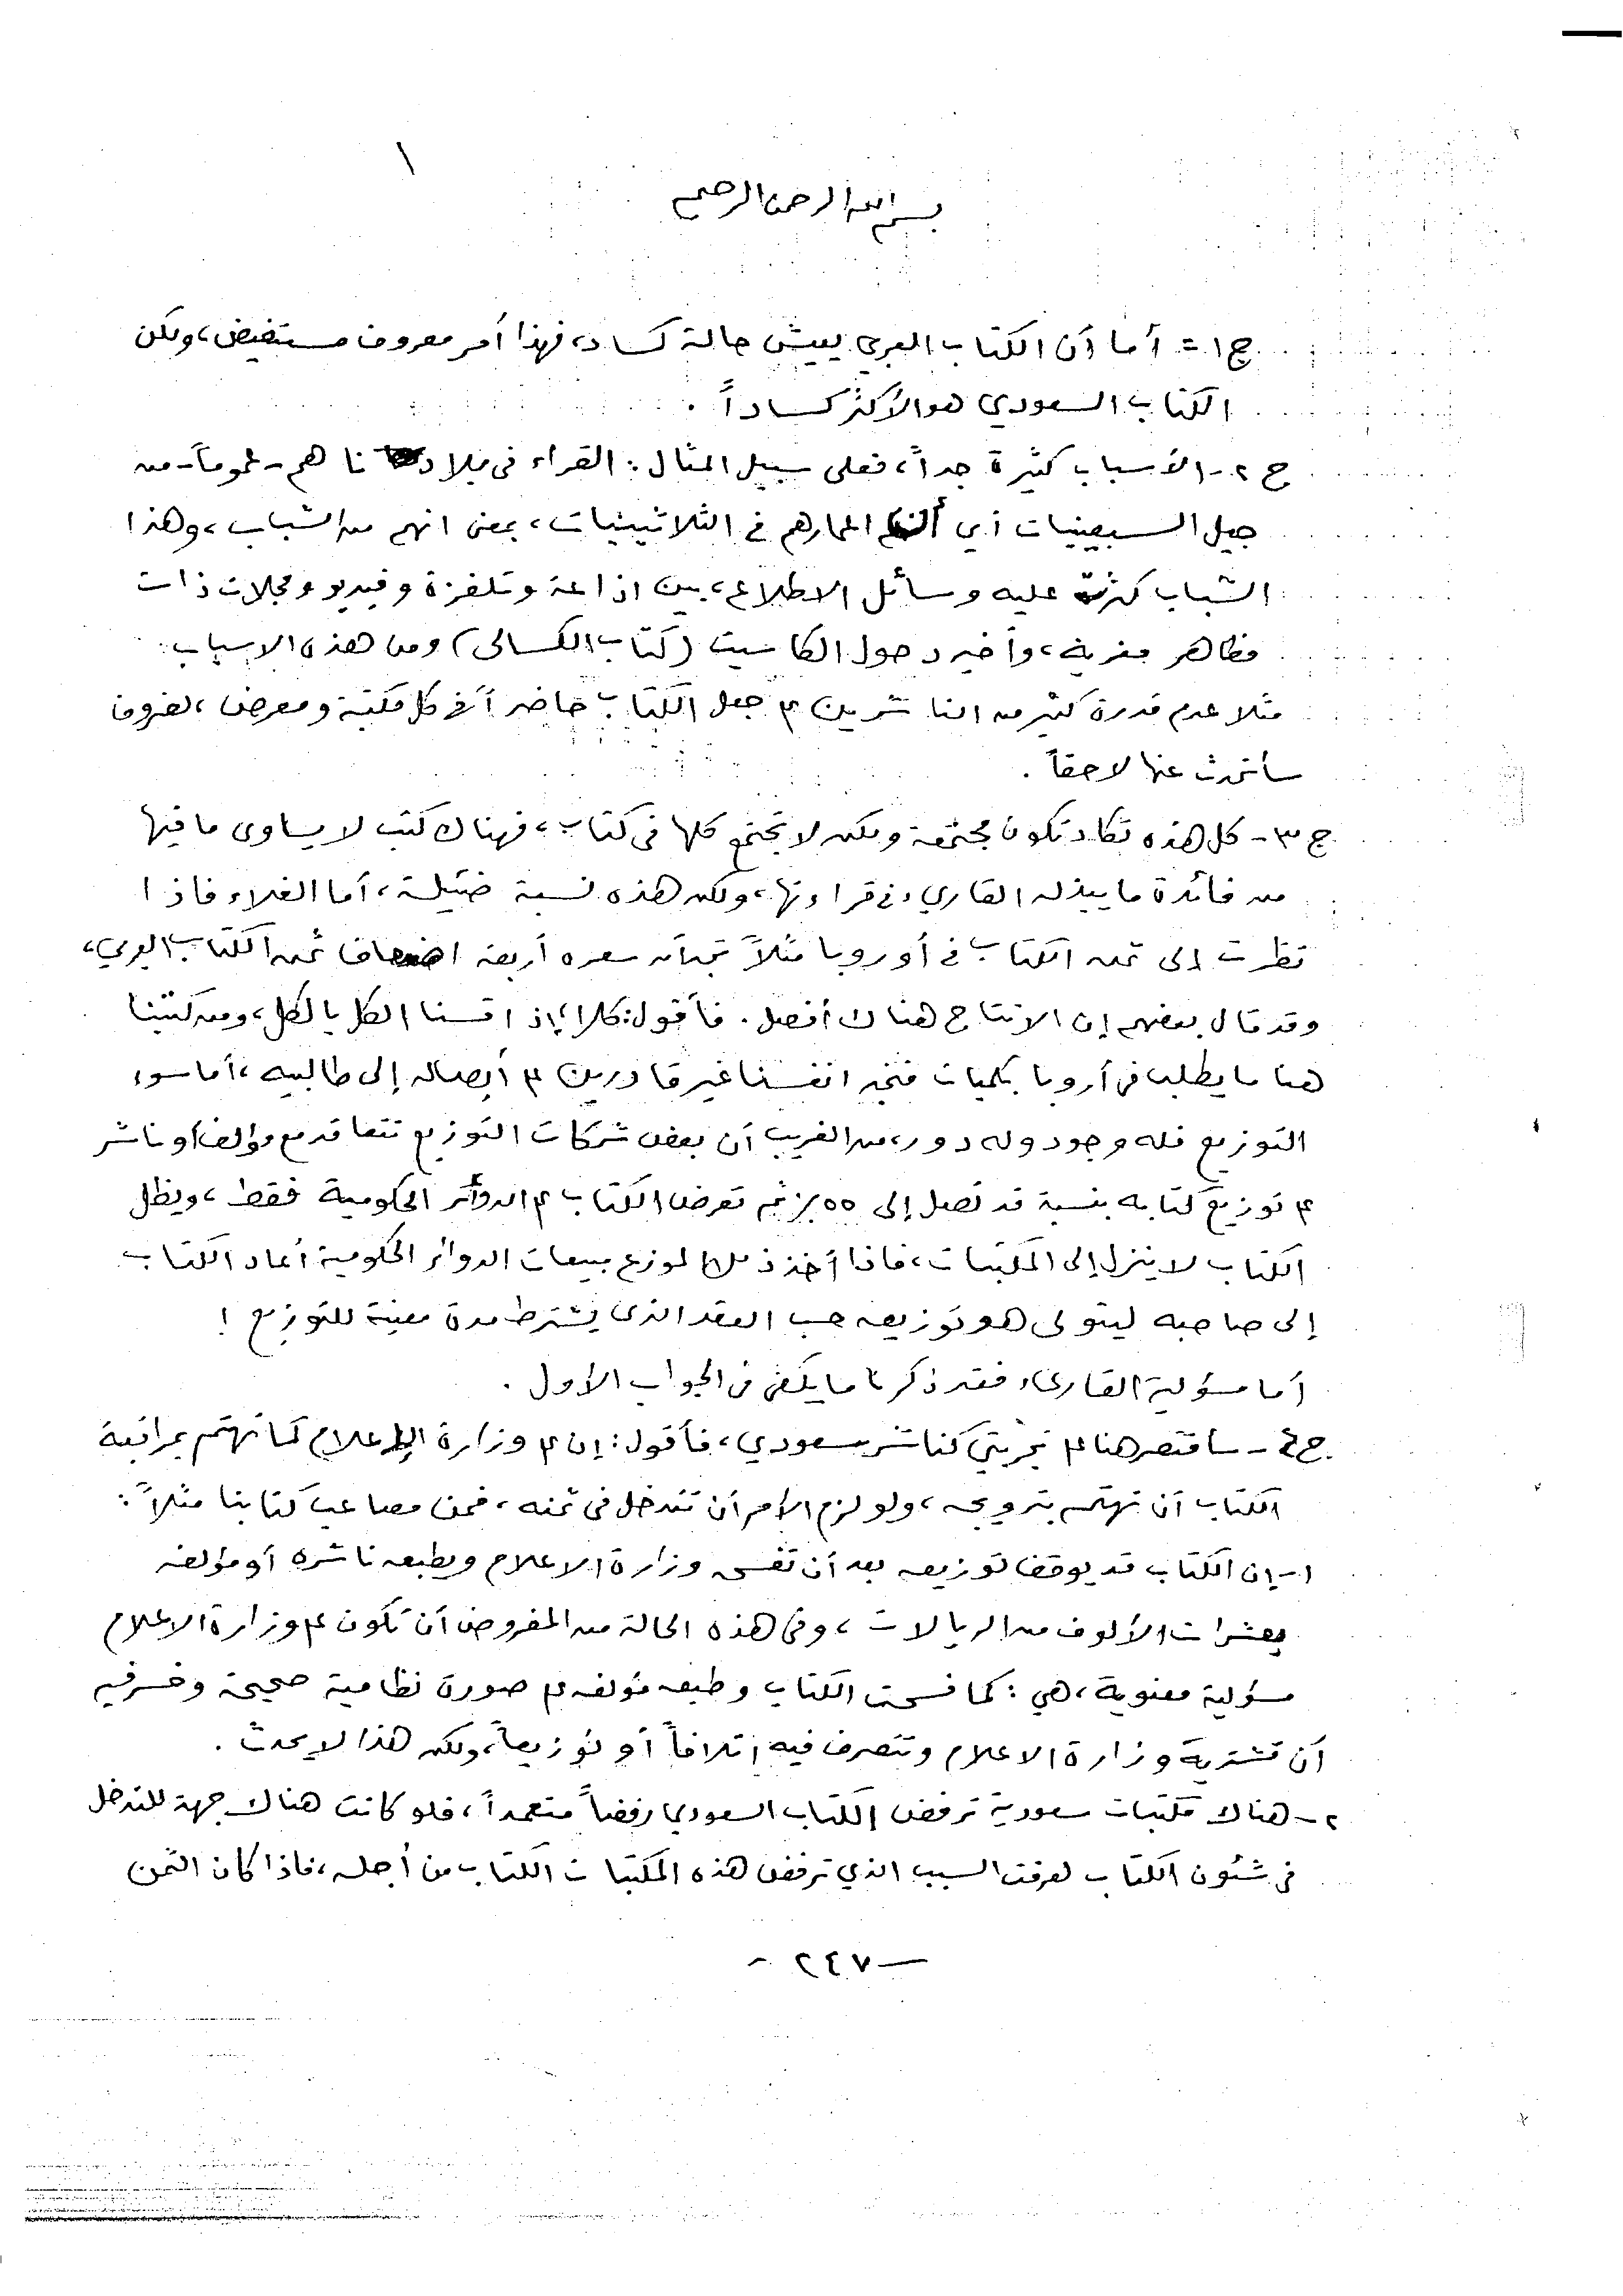 ١
بسم الله الرحمن الرحيم
ج١= أما أن الكتاب العربي يعيش حالة كساد، فهذا أمر معروف مستفيض، ولكن
الكتاب السعودي هو الأكثر كساداً .
ج٢- الأسباب كثيرة جداً، فعلى سبيل المثال : القراء فى بلادنا هم - عموماً - من
جيل السبعينيات أي أعمارهم في الثلاثينيات، بمعنى انهم من الشباب، وهذا
الشباب كثرت عليه وسائل الاطلاع، بين اذاعة وتلفزة وفيديو ومجلات ذات
مظاهر مغرية، وأخير دخول الكاسيت (كتاب الكسالى) ومن هذه الاسباب:
مثلا عدم قدرة كثير من الناشرين على جعل الكتاب حاضراً في كل مكتبة ومعرض، لظروف
سأتحدث عنها لاحقاً .
ج٣- كل هذه تكاد تكون مجتمعة ولكن لا تجتمع كلها فى كتاب، فهناك كتب لا يساوى ما فيها
من فائدة ما يبذله القاريء في قراءتها، ولكن هذه نسبة ضئيلة، أما الغلاء فاذا
نظرت إلى ثمن الكتاب في أوروبا مثلاً تجد أن سعره أربعة اضعاف ثمن الكتاب العربي،
وقد قال بعضهم إن الانتاج هناك أفضل . فأقول: كلا، إذا قسنا الكل بالكل، ومن كتبنا
هنا ما يطلب في أروبا بكميات فنجد انفسنا غير قادرين على أيصاله إلى طالبيه، أما سوء
التوزيع فله وجود وله دور، من الغريب أن بعض شركات التوزيع تتعاقد مع مؤلف أو ناشر
على توزيع كتابه بنسبة قد تصل إلى ٥٥٪ ثم تعرض الكتاب على الدوائر الحكومية فقط، ويظل
الكتاب لا ينزل إلى المكتبات، فاذا أخذ ذلك الموزع مبيعات الدوائر الحكومية أعاد الكتاب
إلى صاحبه ليتولى هو توزيعه حسب العقد الذى يشترط مدة معينة للتوزيع !
أما مسؤلية القارىء فقد ذكرنا ما يكفى فى الجواب الأول .
ج٤- سأقتصر هنا على تجربتي كناشر سعودي، فأقول : إن على وزارة الإعلام كما تهتم بمراقبة
الكتاب أن تهتم بترويجه، ولو لزم الأمر أن تتدخل فى ثمنه، فمن مصاعب كتابنا مثلاً :
١- إن الكتاب قد يوقف توزيعه بعد أن تفسحه وزارة الاعلام ويطبعه ناشره أو مؤلفه
بعشرات الألوف من الريالات، وفى هذه الحالة من المفروض أن تكون على وزارة الاعلام
مسؤلية معنوية، هي : كما فسحت الكتاب وطبعه مؤلفه على صورة نظامية صحيحة وخسر فيه
أن تشتريه وزارة الاعلام وتتصرف فيه إتلافاً أو توزيعاً، ولكن هذا لا يحدث .
٢- هناك مكتبات سعودية ترفض الكتاب السعودي رفضاً متعمداً، فلو كانت هناك جهة للتدخل
فى شئون الكتاب لعرفت السبب الذي ترفض هذه المكتبات الكتاب من أجله، فاذا كان الثمن
- ٢٤٧ -